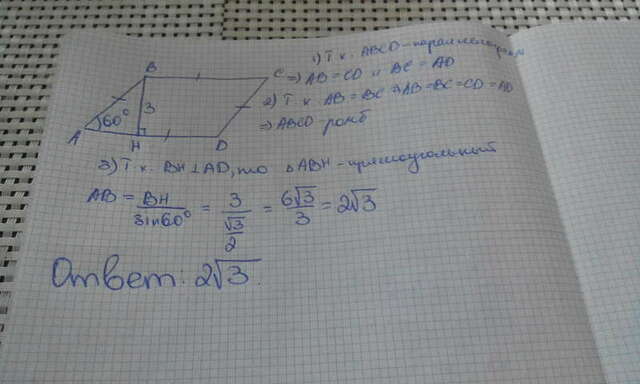 B
C
A
60°
3
H
D
1) Т.к. ABCD - параллелограм
=> AB = CD и BC = AD
2) Т.к AB = BC => AB = BC = CD = AD
=> ABCD - ромб
3) Т.к. BH ⊥ AD, то △ABH - прямоугольный
AB = BH/sin60° = 3/(√3/2) = 6√3/3 = 2√3
Ответ: 2√3.